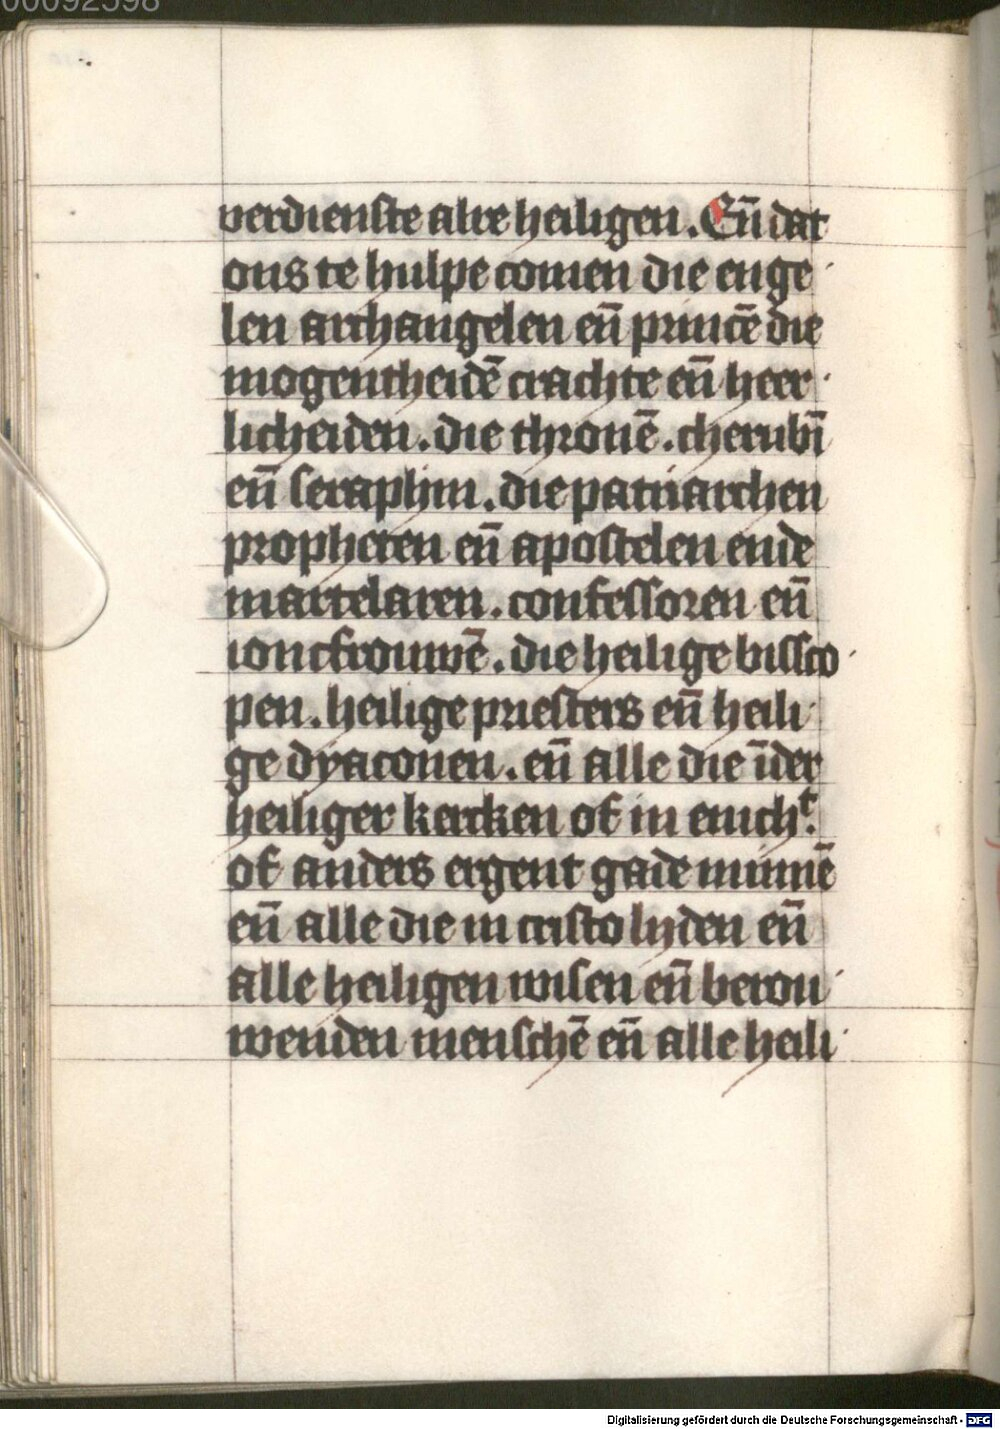 00092598
verdienste alre heiligen. En̄ dat
ons te hulpe comen die enge
len archangelen en̄ princē die
mogentheidē crachte en̄ heer
licheiden. die thronē. cherubī
en̄ seraphin. die patriarchen
propheten en̄ apostelen ende
martelaren. confessoren en̄
ioncfrouwē. die heilige bissco
pen. heilige priesters en̄ heili
ge dyaconen. en̄ alle die īder
heiliger kercken of in enich.ͭ
of anders ergent gade minnē
en̄ alle die in cristo lyden en̄
alle heiligen wisen en̄ berou
wenden menschē en̄ alle heili
Digitalisierung gefördert durch die Deutsche Forschungsgemeinschaft - DFG